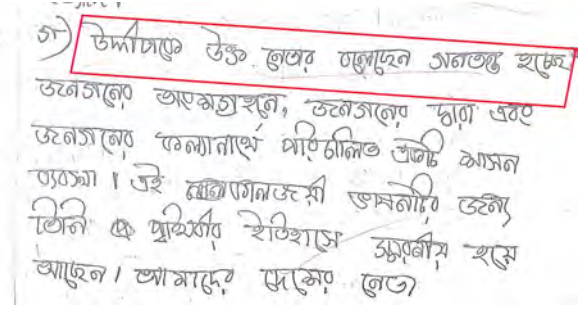 গ) উদ্দীপকে উক্ত নেতার বলেছেন গনতন্ত্র হচ্ছে
জনগনের অংশগ্রহনে, জনগনের দ্বারা এবং
জনগনের কল্যানার্থে পরিচালিত একটি শাসন
ব্যবস্থা। এই কালজয়ী ভাষনটির জন্য
তিনি পৃথিবীর ইতিহাসে স্মরনীয় হয়ে
আছেন। আমাদের দেশের নেতা